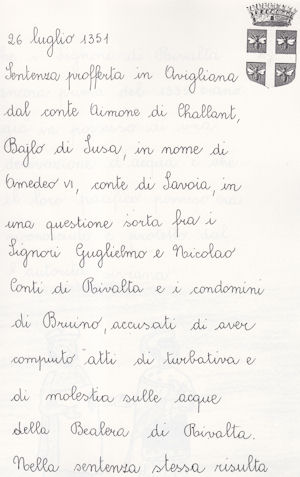 26 luglio 1351
Sentenza profferta in Avigliana
dal conte Aimone di Challant,
Bajlo di Susa, in nome di
Amedeo VI, conte di Savoia, in
una questione sorta fra i
Signori Guglielmo e Nicolao
Conti di Rivalta e i condomini
di Bruino, accusati di aver
compiuto atti di turbativa e
di molestia sulle acque
della Bealera di Rivalta.
Nella sentenza stessa risulta